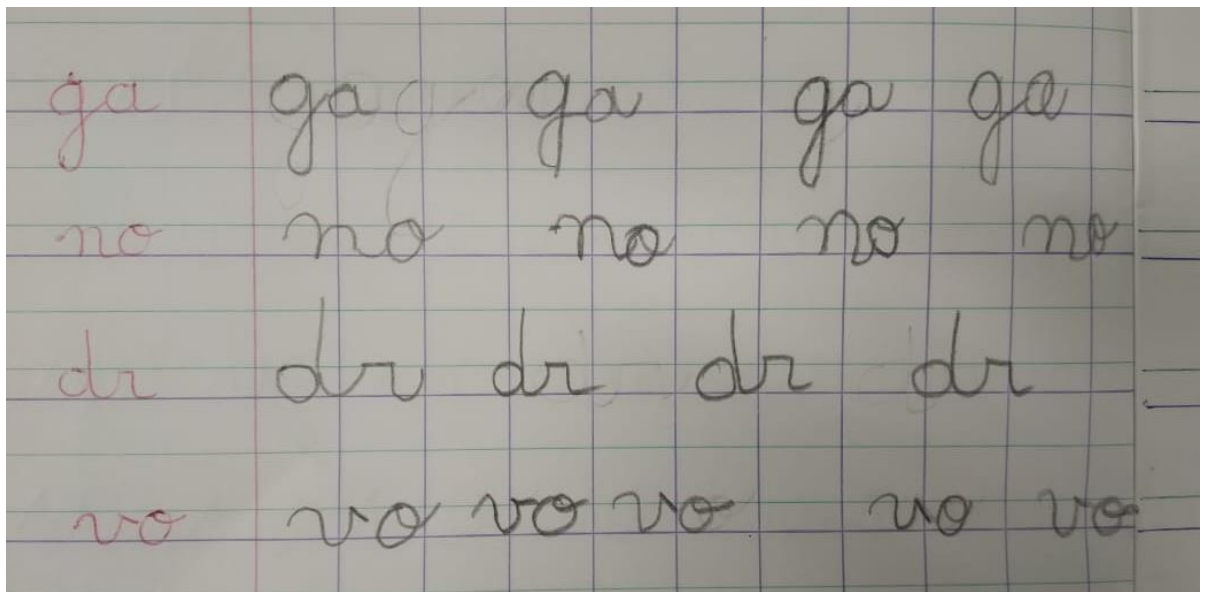 ga ga ga ga ga
no no no no no
dr dr dr dr dr
vo vo vo vo vo vo